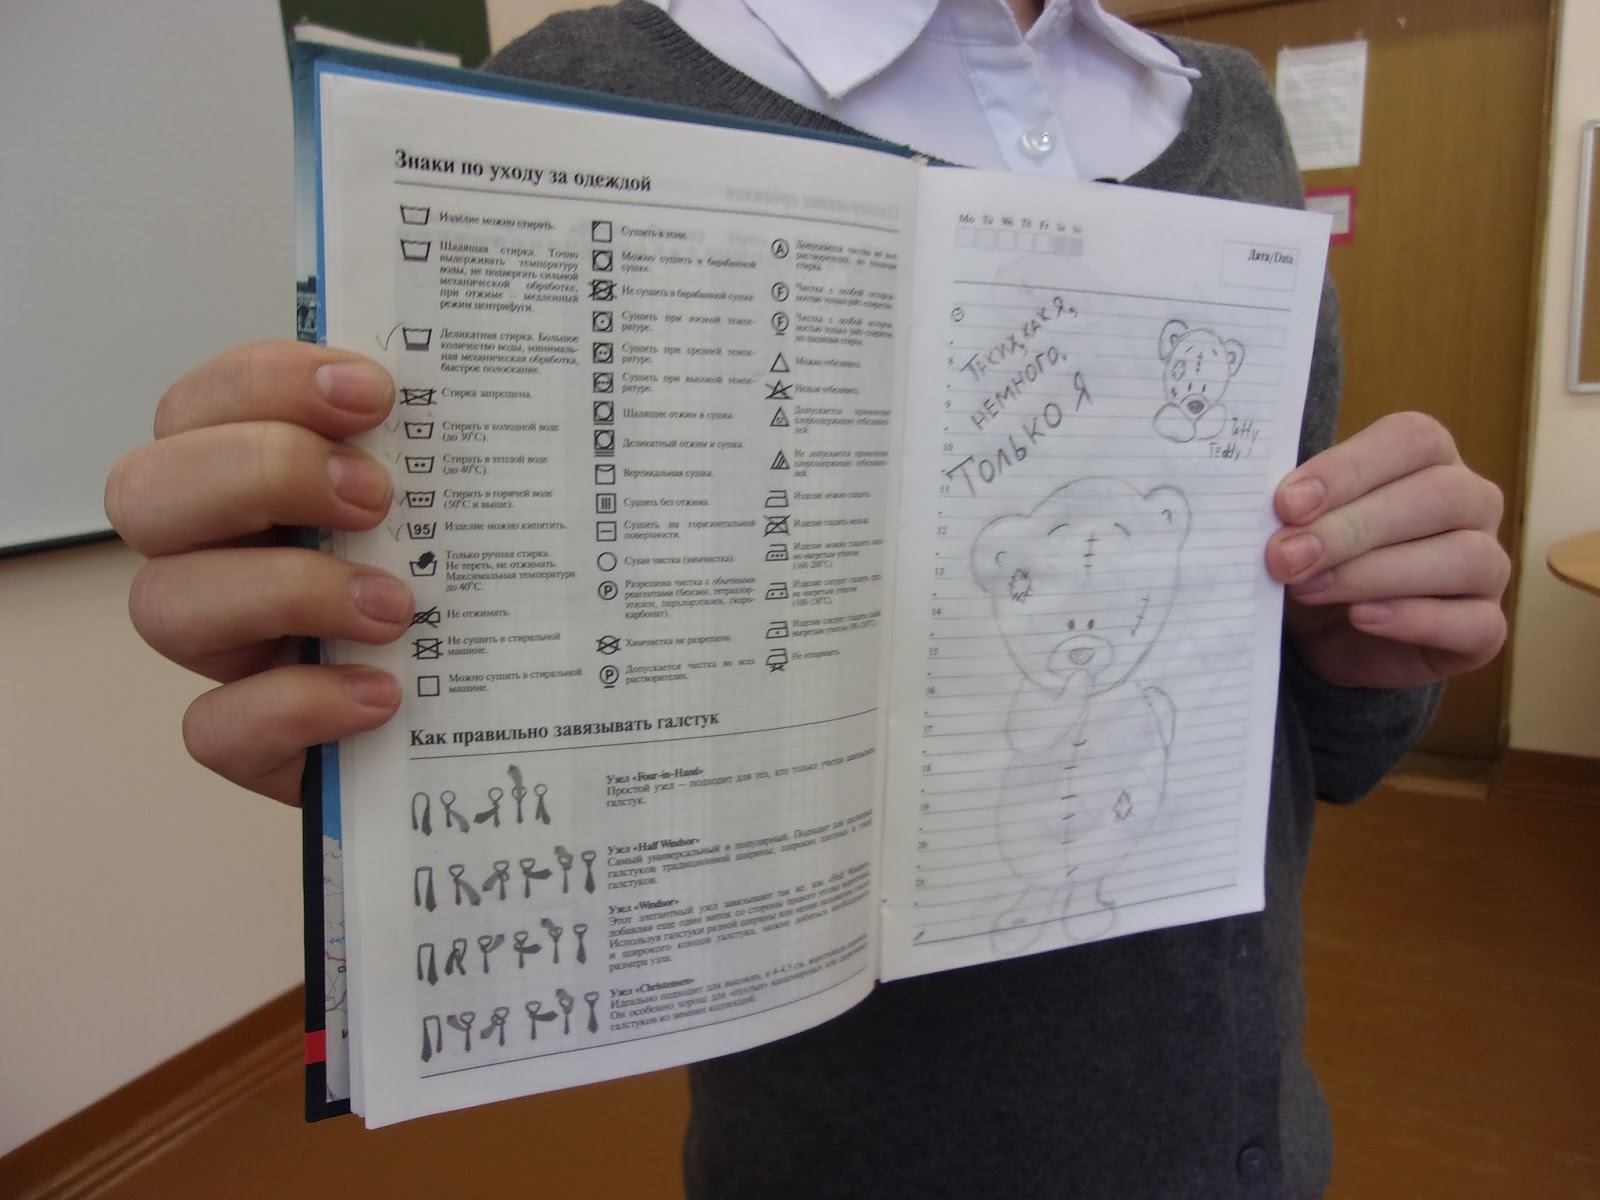 Знаки по уходу за одеждой
Изделие можно стирать.
Щадящая стирка. Точно
выдерживать температуру
воды, не подвергать сильной
механической обработке,
при отжиме – медленный
режим центрифуги.
Деликатная стирка. Большое
количество воды, минималь-
ная механическая обработка,
быстрое полоскание.
Стирка запрещена.
Стирать в холодной воде
(до 30°С).
Стирать в теплой воде
(до 40°С).
Стирать в горячей воде
(50°С и выше).
95
Изделие можно кипятить.
Только ручная стирка.
Не тереть, не отжимать.
Максимальная температура
до 40°С.
Не отжимать.
Не сушить в стиральной
машине.
Можно сушить в стиральной
машине.
Сушить в тени.
Можно сушить в барабанной
сушке.
Не сушить в барабанной сушке.
Сушить при низкой темпе-
ратуре.
Сушить при средней темпе-
ратуре.
Сушить при высокой темпе-
ратуре.
Щадящие отжим и сушка.
Деликатный отжим и сушка.
Вертикальная сушка.
Сушить без отжима.
Сушить на горизонтальной
поверхности.
Сухая чистка (химчистка).
P
Разрешена чистка с обычными
реагентами (бензин, тетрахлор-
этилен, перхлорэтилен, гидро-
карбонат).
Химчистка не разрешена.
P
Допускается чистка во всех
растворителях.
A
Допускается чистка во всех
растворителях, но
стирка.
F
Чистка с особой осторож-
ностью только уайт-спиритом.
F
Чистка с особой осторож-
ностью только уайт-спиритом,
но щадящая стирка.
Можно отбеливать.
Нельзя отбеливать.
Допускается применение
хлорсодержащих отбеливате-
лей.
Не допускается применение
хлорсодержащих отбеливате-
лей.
Изделие можно гладить.
Изделие гладить нельзя.
Изделие можно гладить
нагретым утюгом
(160-200°С).
Изделие следует гладить
нагретым утюгом
Изделие следует гладить
нагретым утюгом
Не отпаривать.
Как правильно завязывать галстук
Узел «Four-in-Hand»
Простой узел – подходит для тех, кто только учится завязывать
галстук.
Узел «Half Windsor»
Самый универсальный и популярный. Подходит для
галстуков традиционной ширины, широких плотных и узких
галстуков.
Узел «Windsor»
Этот элегантный узел завязывают так же, как «Half Windsor»,
добавляя еще один виток со стороны правого уголка воротника.
Используя галстуки разной ширины или меняя положение узкого
и широкого концов галстука, можно добиться необходимого
размера узла.
Узел «Christensen»
Идеально подходит для высоких, в 4-4,5 см,
Он особенно хорош для «пухлых» кашемировых или шерстяных
галстуков из зимних коллекций.
Mo Tu We Th Fr Sa Su
Дата/Data
Таких, как я,
немного.
Только я
Tatty
Teddy
8
9
10
11
12
13
14
15
16
17
18
19
20
21